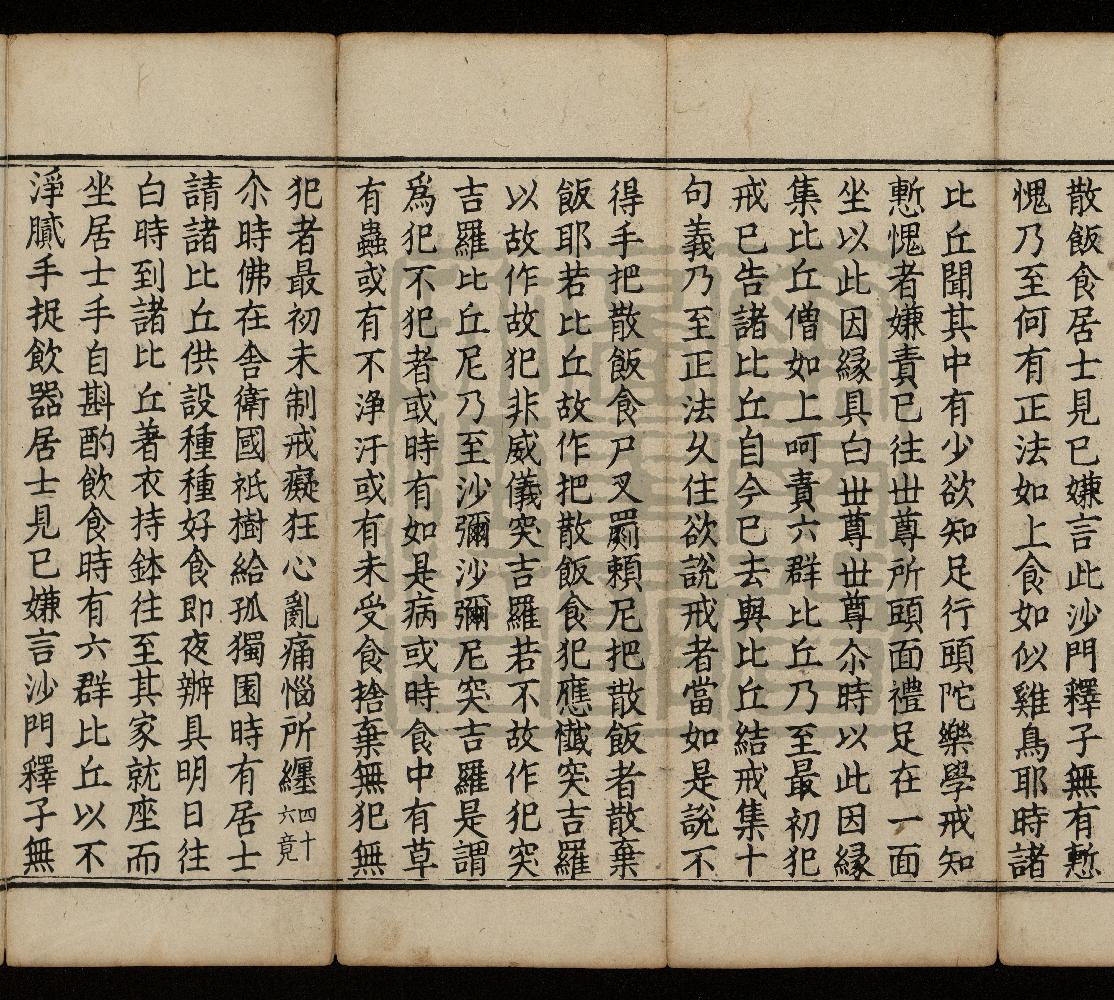 散飯食居士見已嫌言此沙門釋子無有慙
愧乃至何有正法如上食如似雞鳥耶時諸
比丘聞其中有少欲知足行頭陀樂學戒知
慙愧者嫌責已往世尊所頭面禮足在一面
坐以此因縁具白世尊世尊尒時以此因縁
集比丘僧如上呵責六群比丘乃至最初犯
戒已告諸比丘自今已去與比丘結戒集十
句義乃至正法久住欲說戒者當如是說不
得手把散飯食尸叉罽賴尼把散飯者散棄
飯耶若比丘故作把散飯食犯應懺突吉羅
以故作故犯非威儀突吉羅若不故作犯突
吉羅比丘尼乃至沙彌沙彌尼突吉羅是謂
爲犯不犯者或時有如是病或時食中有草
有蟲或有不淨汙或有未受食捨棄無犯無
犯者最初未制戒癡狂心亂痛惱所纏四十六竟
尒時佛在舍衛國祇樹給孤獨園時有居士
請諸比丘供設種種好食即夜辦具明日往
白時到諸比丘著衣持鉢往至其家就座而
坐居士手自斟酌飲食時有六群比丘以不
淨膩手捉飲器居士見已嫌言沙門釋子無